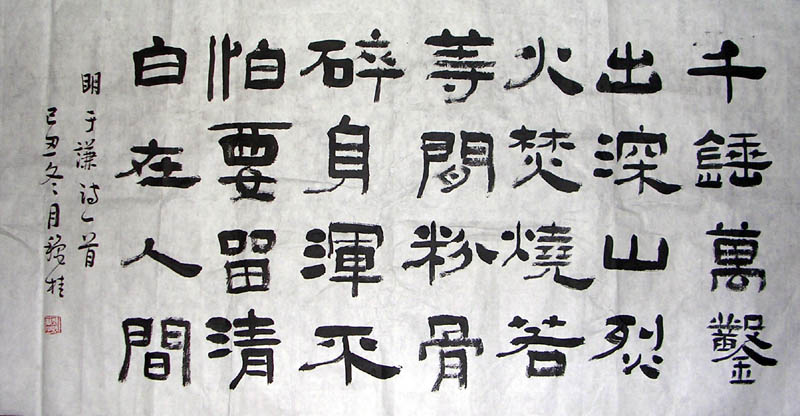 千錘萬鑿
出深山烈
火焚燒若
等閒粉骨
碎身渾不
怕要留清
白在人間
明于謙诗一首
己丑冬月桂